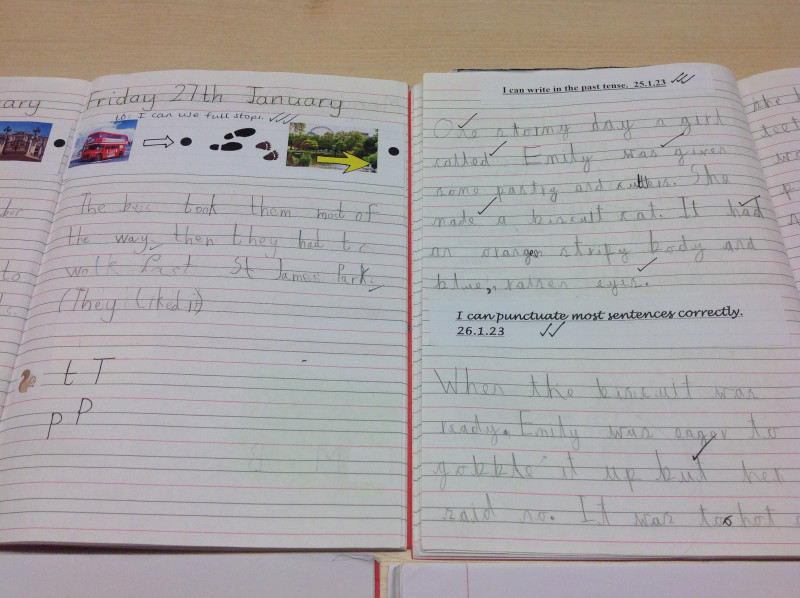 ary
Friday 27th January
L.O. I can use full stops.
The bus took them most of
the way, then they had to
walk Past St James Park.
(They Liked it)
to
t T
p P
I can write in the past tense. 25.1.23
One stormy day a girl
called Emily was given
some pastry and cutters. She
made a biscuit cat. It had
an orange stripy body and
blue, eyes.
I can punctuate most sentences correctly.
26.1.23
When the biscuit was
ready, Emily was eager to
gobble it up but her
said no. It was too hot
she